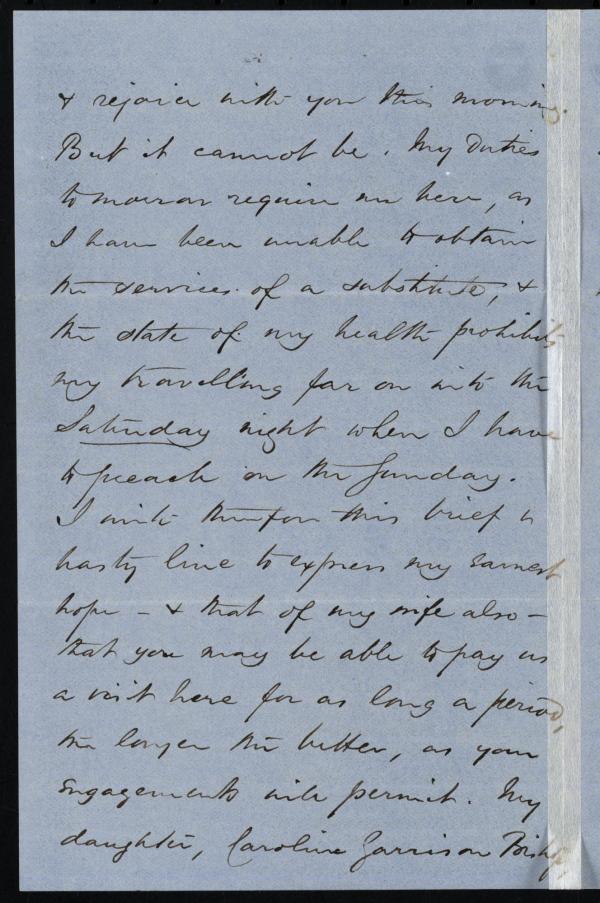 & rejoice with you this morning.
But it cannot be. My duties
tomorrow require me here, as
I have been unable to obtain
the services of a substitute, &
the state of my health prohibits
my travelling far on into the
Saturday night when I have
to preach on the Sunday.
I write therefore this brief &
hasty line to express my earnest
hope - & that of my wife also -
that you may be able to pay us
a visit here for as long a period,
the longer the better, as your
engagements will permit. My
daughter, Caroline Garrison Bishop,